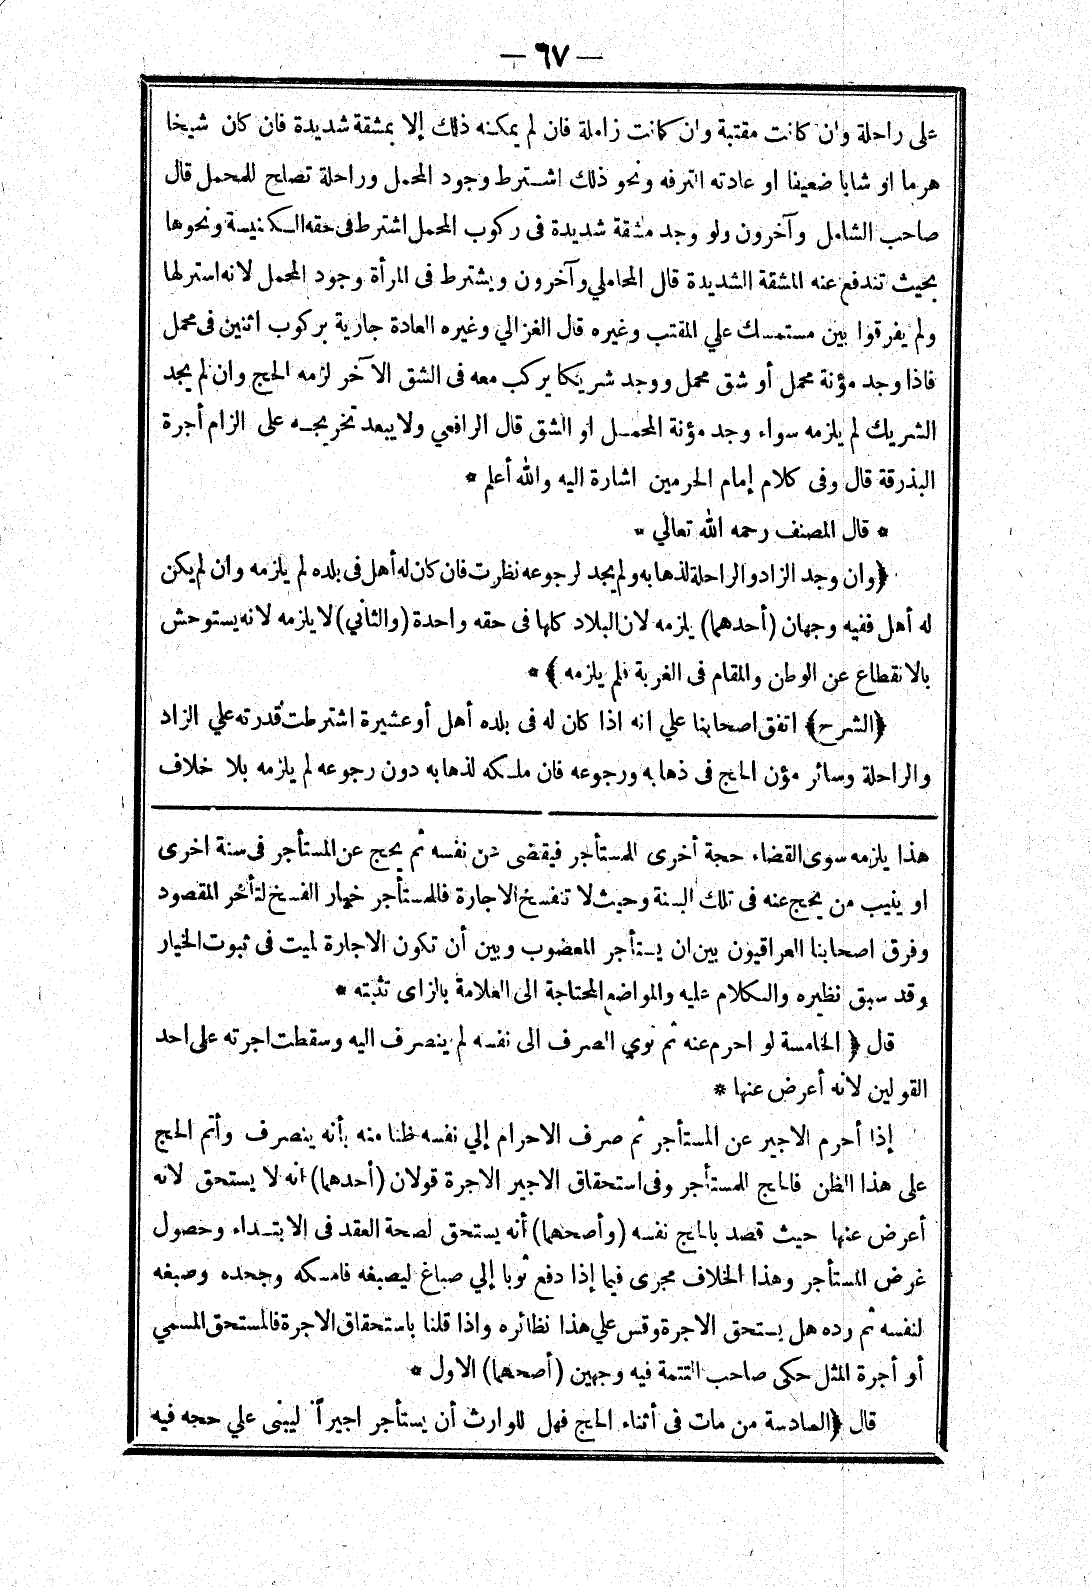 — ٦٧ —
على راحلة وان كانت مقتبة وان كانت زاملة فان لم يمكنه ذلك إلا بمشقة شديدة فان كان شيخا
هرما او شابا ضعيفا او عادته الترفه ونحو ذلك اشترط وجود المحمل وراحلة تصلح للمحمل قال
صاحب الشامل وآخرون ولو وجد مشقة شديدة فى ركوب المحمل اشترط فى حقه الكنيسة ونحوها
بحيث تندفع عنه المشقة الشديدة قال المحاملي وآخرون ويشترط فى المرأة وجود المحمل لانه استرلها
ولم يفرقوا بين مستمسك علي المقتب وغيره قال الغزالي وغيره العادة جارية بركوب اثنين فى محمل
فاذا وجد مؤنة محمل أو شق محمل ووجد شريكا يركب معه فى الشق الآخر لزمه الحج وان لم يجد
الشريك لم يلزمه سواء وجد مؤنة المحمل او الشق قال الرافعي ولا يبعد تخريجه على الزام أجرة
البذرقة قال وفى كلام إمام الحرمين اشارة اليه والله أعلم *
* قال المصنف رحمه الله تعالي *
﴿وان وجد الزاد والراحلة لذهابه ولم يجد لرجوعه نظرت فان كان له أهل فى بلده لم يلزمه وان لم يكن
له أهل ففيه وجهان (أحدهما) يلزمه لان البلاد كلها فى حقه واحدة (والثاني) لا يلزمه لانه يستوحش
بالانقطاع عن الوطن والمقام فى الغربة فلم يلزمه ﴾ *
﴿الشرح﴾ اتفق اصحابنا علي انه اذا كان له فى بلده أهل أو عشيرة اشترطت قدرته علي الزاد
والراحلة وسائر مؤن الحج فى ذهابه ورجوعه فان ملكه لذهابه دون رجوعه لم يلزمه بلا خلاف
هذا يلزمه سوى القضاء حجة أخرى للمستأجر فيقضى عن نفسه ثم يحج عن المستأجر فى سنة اخرى
او ينيب من يحج عنه فى تلك السنة وحيث لا تنفسخ الاجارة فللمستأجر خيار الفسخ لتأخر المقصود
وفرق اصحابنا العراقيون بين ان يستأجر المعضوب وبين أن تكون الاجارة لميت فى ثبوت الخيار
وقد سبق نظيره والكلام عليه والمواضع المحتاجة الى العلامة بالزاى تثبته *
قال ﴿ الخامسة لو احرم عنه ثم نوي الصرف الى نفسه لم ينصرف اليه وسقطت اجرته على احد
القولين لانه أعرض عنها *
إذا أحرم الاجير عن المستأجر ثم صرف الاحرام إلي نفسه ظنا منه بأنه ينصرف وأتم الحج
على هذا الظن فالحج للمستأجر وفى استحقاق الاجير الاجرة قولان (أحدهما) انه لا يستحق لانه
أعرض عنها حيث قصد بالحج نفسه (وأصحهما) أنه يستحق لصحة العقد فى الابتداء وحصول
غرض المستأجر وهذا الخلاف مجرى فيما إذا دفع ثوبا إلي صباغ ليصبغه فامسكه وجحده وصبغه
لنفسه ثم رده هل يستحق الاجرة وقس علي هذا نظائره واذا قلنا باستحقاق الاجرة فالمستحق المسمي
أو أجرة المثل حكى صاحب التتمة فيه وجهين (أصحهما) الاول *
قال ﴿السادسة من مات فى أثناء الحج فهل للوارث أن يستأجر اجيراً ليبنى علي حجه فيه